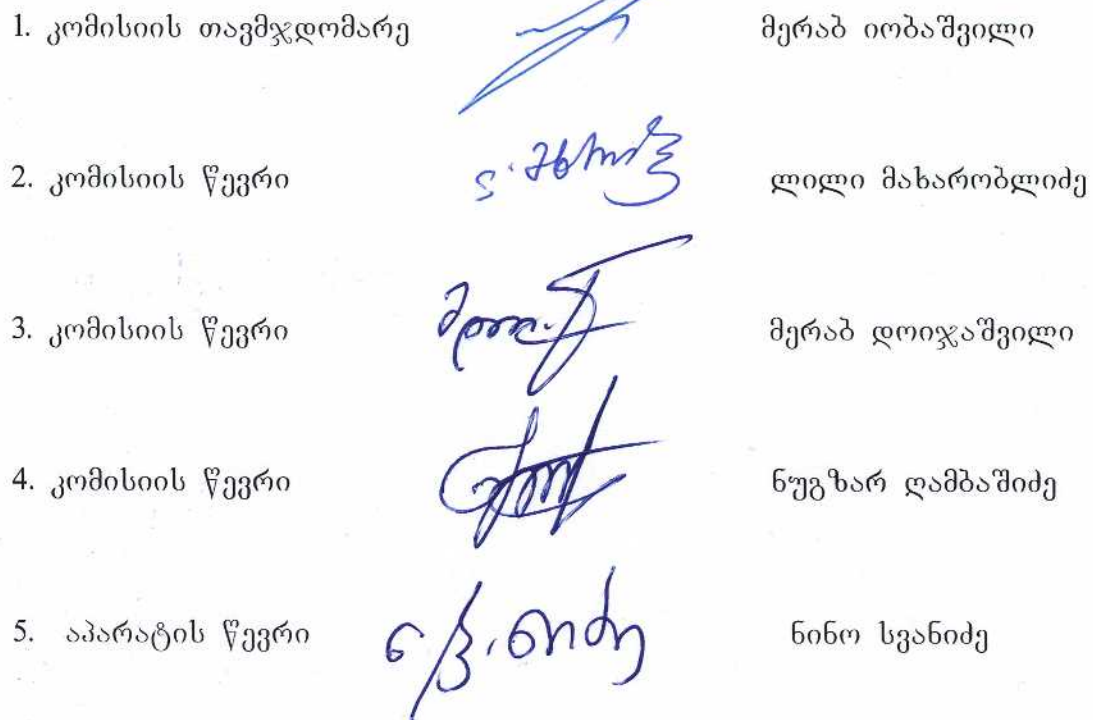 1. კომისიის თავმჯდომარე მერაბ იობაშვილი
2. კომისიის წევრი ლილი მახარობლიძე
3. კომისიის წევრი მერაბ დოიჯაშვილი
4. კომისიის წევრი ნუგზარ ღამბაშიძე
5. აპარატის წევრი ნინო სვანიძე